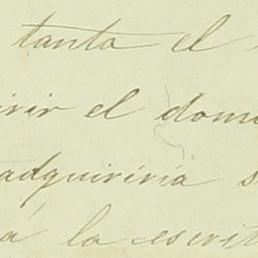 tanta el
irir el dom
adquiriria s
á la escrit